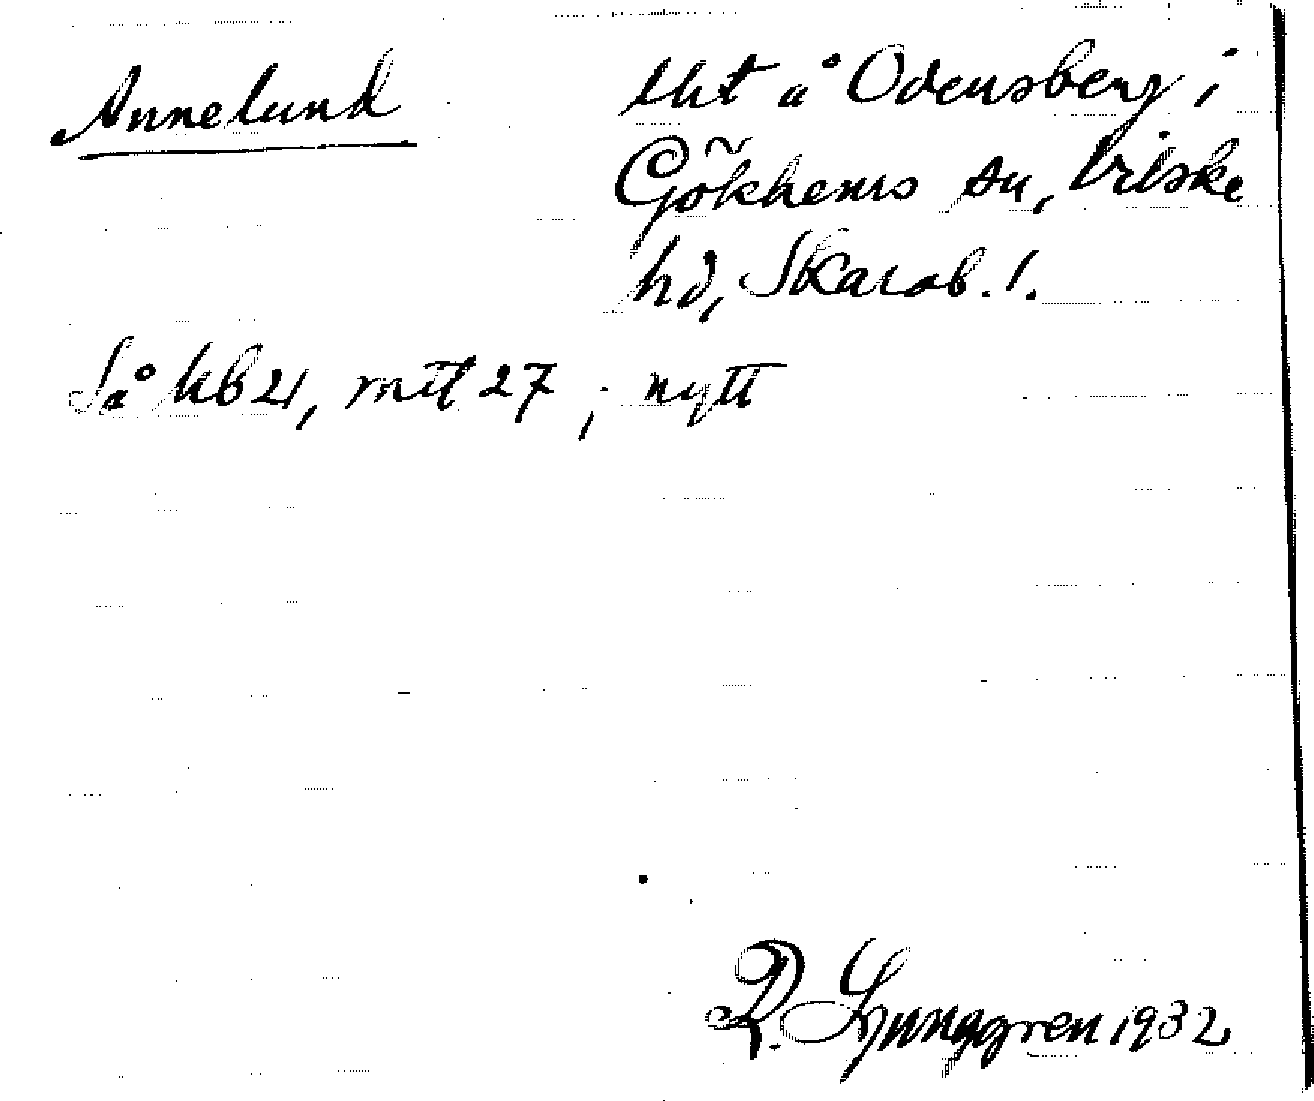 Annelund
tht å Odensberg i
Gökhems sn, Vilske
hd, Skarab. l.
Så kb 21, mtl 27; nytt
R. Ljunggren 1932